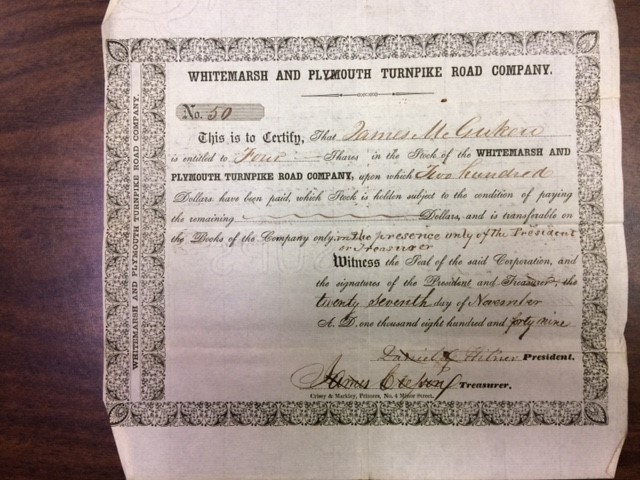 WHITEMARSH AND PLYMOUTH TURNPIKE ROAD COMPANY.
WHITEMARSH AND PLYMOUTH TURNPIKE ROAD COMPANY.
No. 50
This is to Certify, That James
is entitled to Four Shares in the Stock of the WHITEMARSH AND
PLYMOUTH TURNPIKE ROAD COMPANY, upon which Two hundred
Dollars have been paid, which Stock is holden subject to the condition of paying
the remaining Dollars, and is transferable on
the Books of the Company only in the presence only of the President
or Treasurer
Witness the Seal of the said Corporation, and
the signatures of the President and Treasurer, the
twenty seventh day of November
A. D. one thousand eight hundred and forty nine
Daniel President.
James Treasurer.
Crissy & Markley, Printers, No. 4 Minor Street.